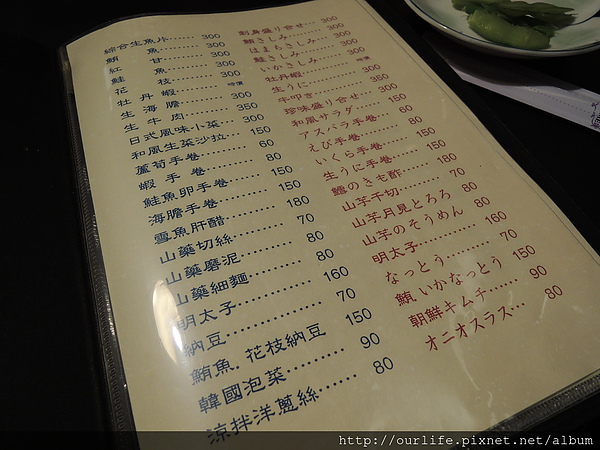 綜合生魚片…… 300
鮪 魚…… 300
紅 甘…… 300
鮭 魚…… 300
花 枝…… 300
牡丹蝦…… 時價
生海膽…… 300
生牛肉…… 350
日式風味小菜… 300
和風生菜沙拉… 150
蘆筍手卷…… 60
蝦手卷…… 80
鮭魚卵手卷…… 150
海膽手卷…… 150
雪魚肝醋…… 180
山藥切絲…… 70
山藥磨泥…… 80
山藥細麵…… 80
明太子…… 160
納豆…… 70
鮪魚.花枝納豆 150
韓國泡菜…… 90
涼拌洋蔥絲…… 80
刺身盛り合せ… 300
鮪さしみ…… 300
はまちさしみ… 300
鮭さしみ…… 300
いかさしみ…… 300
牡丹蝦…… 時價
生うに…… 300
牛叩き…… 350
珍味盛り合せ… 300
和風サラダ… 150
アスパラ手卷… 60
えび手卷…… 80
いくら手卷…… 150
生うに手卷…… 150
鱈のきも酢…… 180
山芋千切…… 70
山芋月見とろろ 80
山芋のそうめん 80
明太子…… 160
なっとう…… 70
鮪.いかなっとう 150
朝鮮キムチ…… 90
オニオスラス… 80
http://ourlife.pixnet.net/album